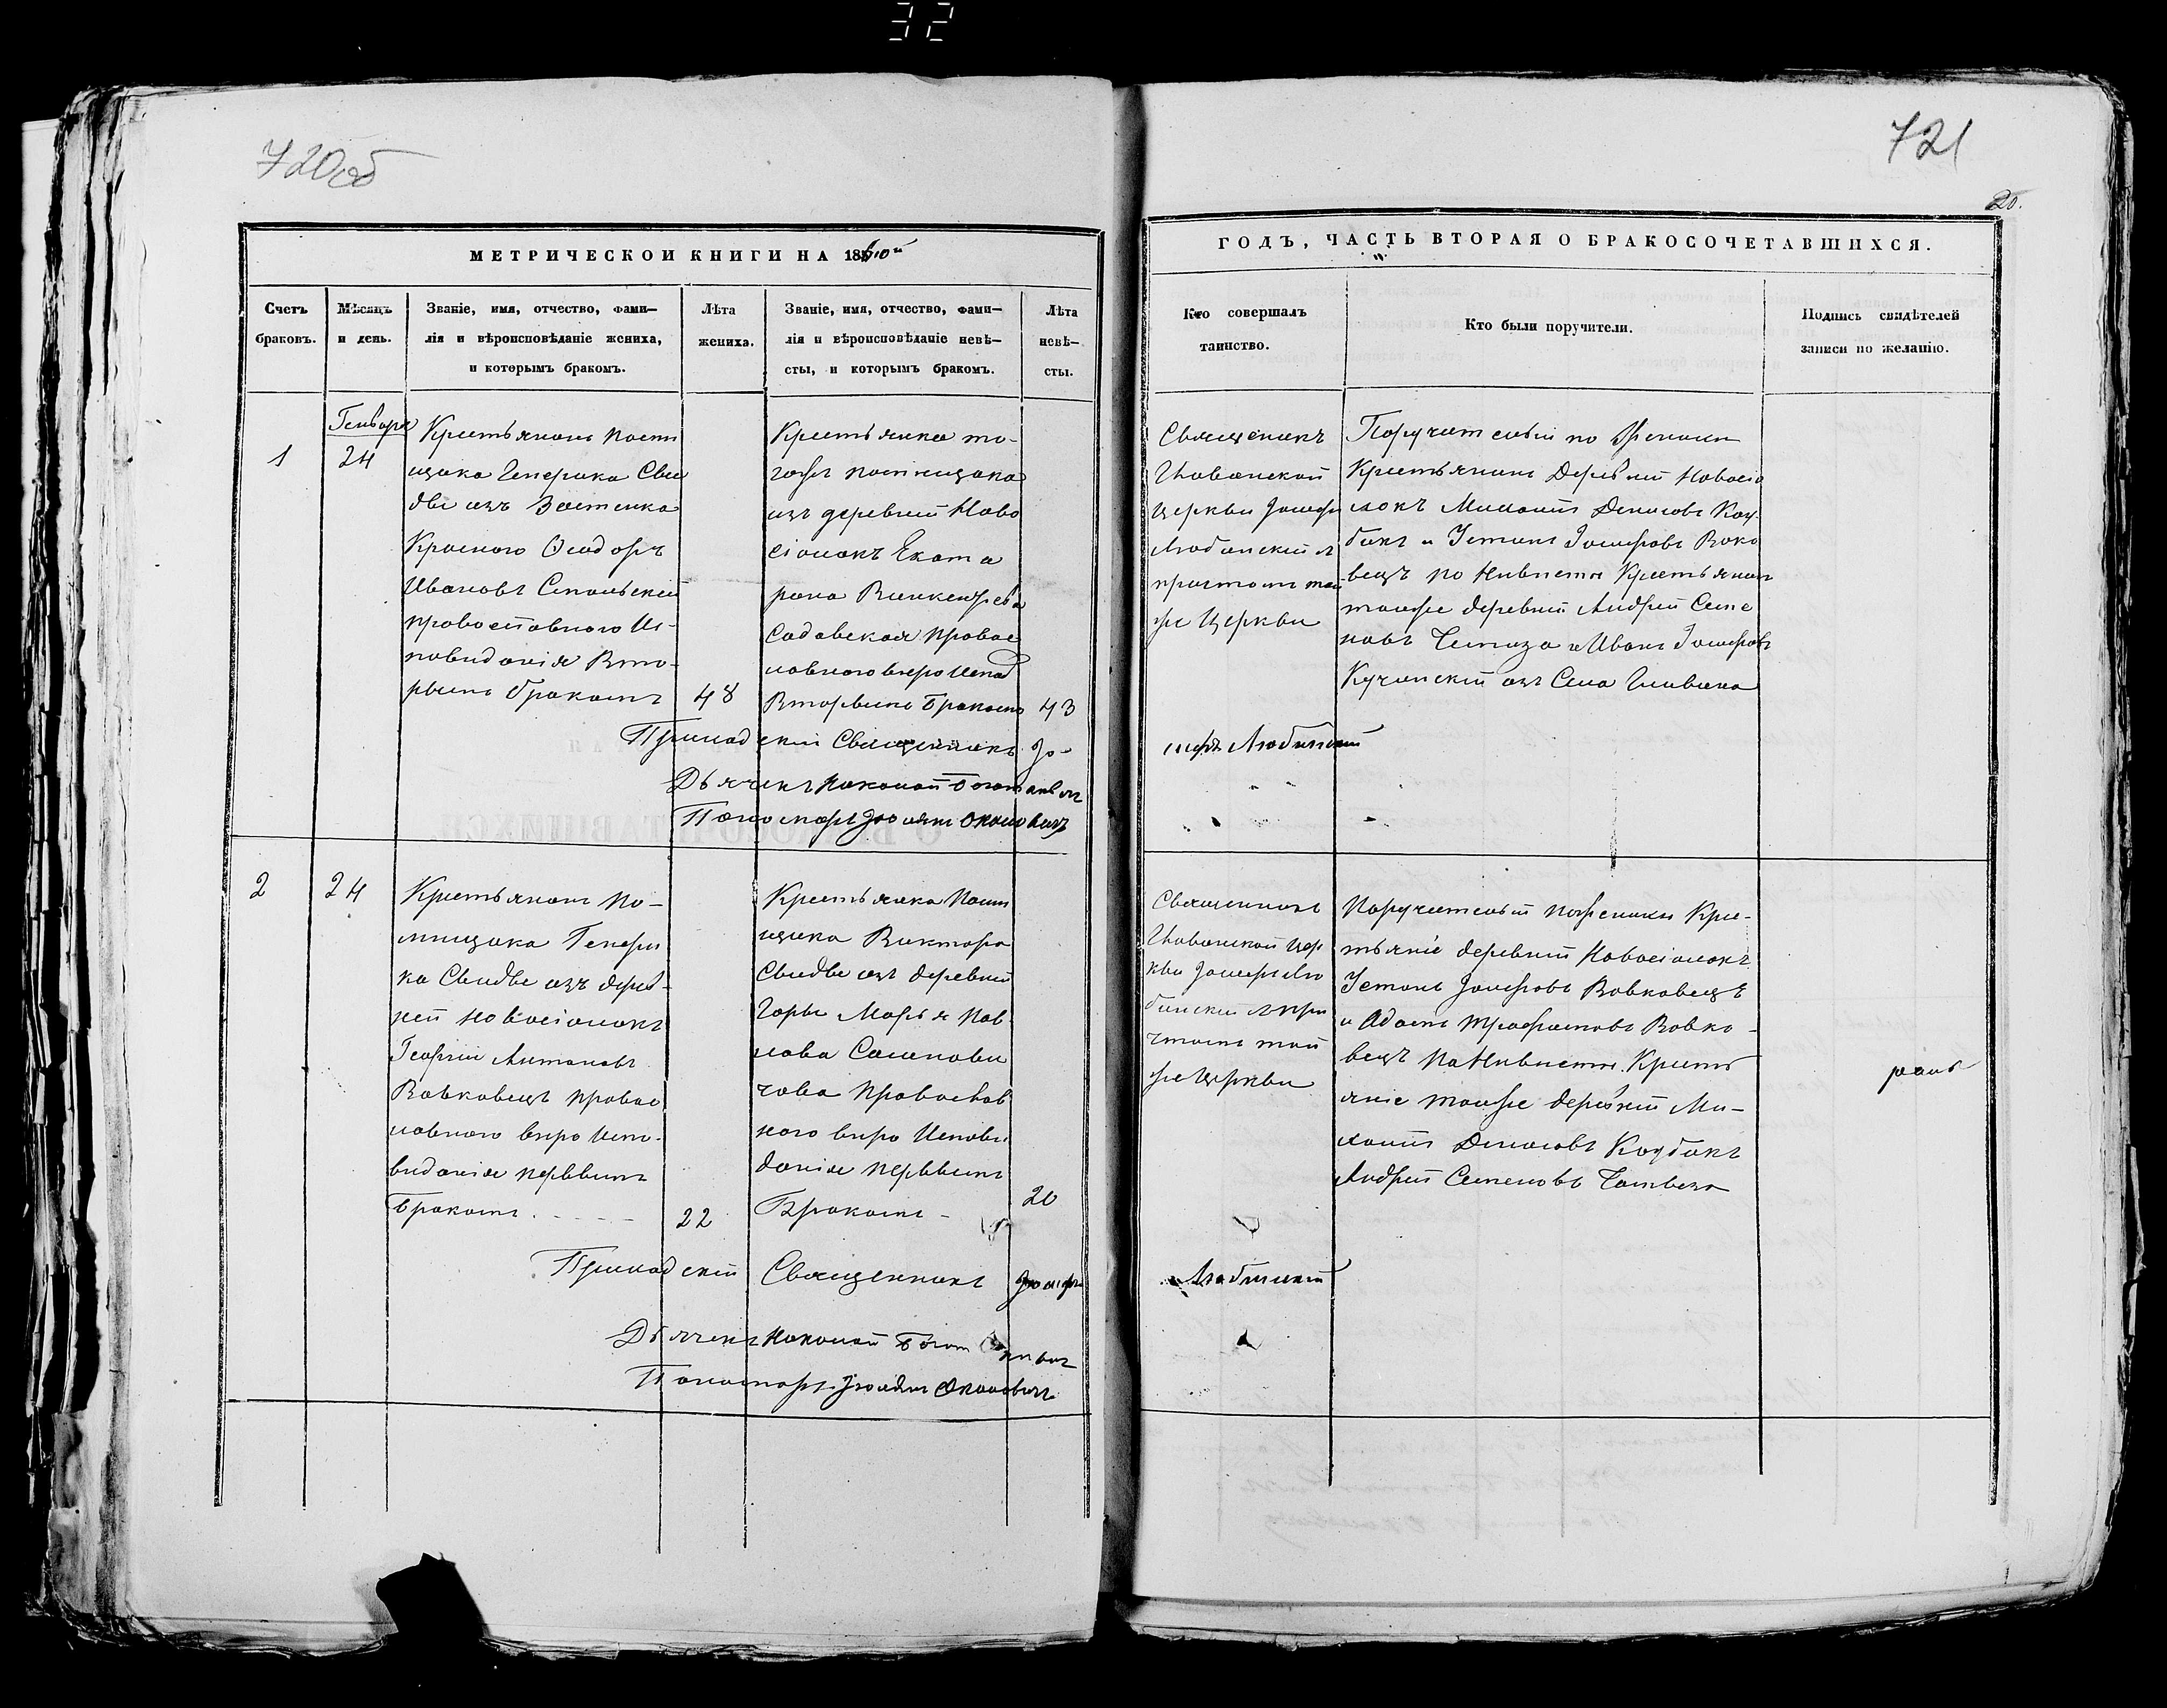 32
720об
721
20.
МЕТРИЧЕСКОЙ КНИГИ НА 1860й
ГОДЪ, ЧАСТЬ ВТОРАЯ О БРАКОСОЧЕТАВШИХСЯ.
Счетъ
браковъ.
Мѣсяцъ
и день.
Званіе, имя, отчество, фами—
лія и вѣроисповѣданіе жениха,
и которымъ бракомъ.
Лѣта
жениха.
Званіе, имя, отчество, фами—
лія и вѣроисповѣданіе невѣ—
сты, и которымъ бракомъ.
Лѣта
невѣ—
сты.
Кто совершалъ
таинство.
Кто были поручители.
Подпись свидѣтелей
записи по желанію.
1
Генваря
24
Крестьянинъ помѣ
щика Генрика Сви
две изъ Застенка
Красного Феодоръ
Ивановъ
православного Ис-
повиданія Вто-
рымъ бракомъ
48
Крестьянка то-
гожъ помищика
изъ деревни Ново
сіолокъ Екате
рина Викентіева
Садовская правос
лавного виро Испов
Вторымъ бракомъ
43
Священикъ
церкви Іосифъ
Любинскій
причтомъ той
же Церкви
Поручители по Жениху
Крестьянинъ Деревни Новосіо
локъ Михаилъ Денисовъ Коу-
бакъ и Устинъ Іосифовъ Вовко
вецъ по Нивисты Крестьянинъ
тоиже деревни Андрей Семе
новъ и Иванъ Іосифовъ
Кучинскій изъ Села
Приходскій Священникъ Іо-
сифъ Любинскій
Дьячекъ Николай
Пономарь Іюлянъ
2
24
Крестьянинъ По-
мищика Генри
ка Свидве изъ дерев-
ней Новосіолокъ
Георгій Антоновъ
Вовковецъ правос
лавного виро Испо-
виданія первымъ
бракомъ
22
Крестьянка Поми
щика Виктора
Свидве изъ деревни
Горы Марья Пав
лова
чова Православ
ного виро Испови
данія первымъ
Бракомъ -
20
Священникъ
церкви Іосифъ Лю
бинскій
чтомъ той
же Церкви
Поручители по жениху Крес-
тьяніе деревни Новосіолокъ
Устинъ Іосифовъ Вовковецъ
и Адамъ Трофимовъ Вовко-
вецъ По Нивисты Кресть
яніе тоиже деревни Ми-
хаилъ Денисовъ Коубакъ
Андрей Семеновъ
Приходскій Священникъ Іосифъ
Любинскій
Дьячекъ Николай
Пономарь Іюлянъ